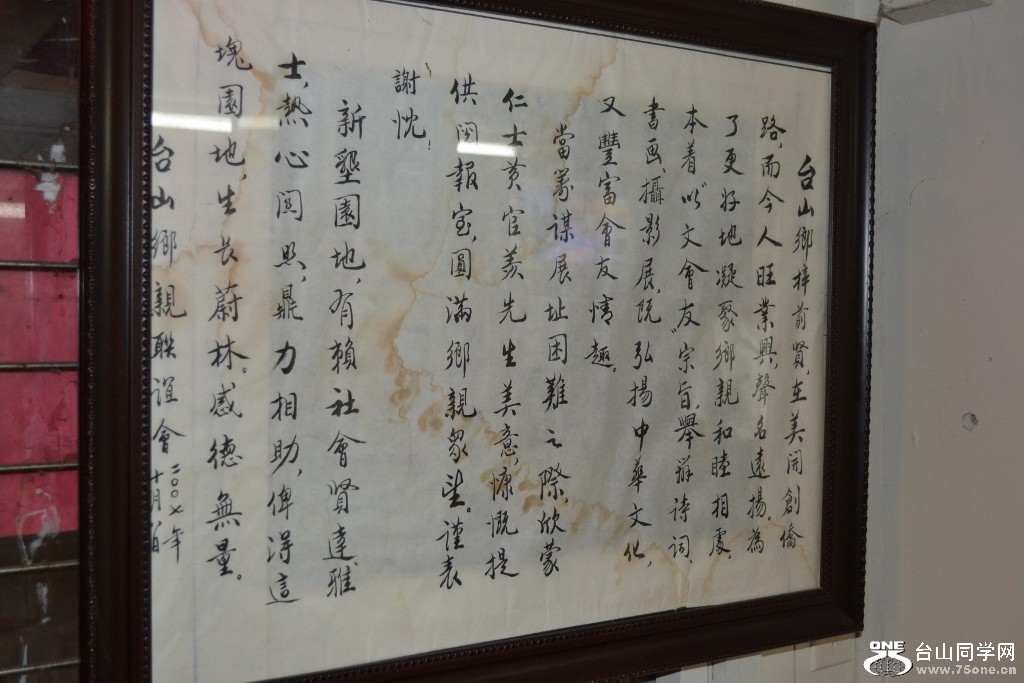 台山鄉梓前賢,在美開創僑
路,而今人旺業興,聲名遠揚,為
了更好地凝聚鄉親和睦相處,
本着"以文會友"宗旨,舉辦詩詞、
書画、攝影展,既弘揚中華文化,
又豐富會友情趣。
當籌謀展址困難之際,欣蒙
仁士黃官羨先生美意,慷慨提
供閱報室,圓滿鄉親眾望。謹表
謝忱!
新墾園地,有賴社會賢達、雅
士,熱心関照,鼎力相助,俾得這
塊園地,生長蔚林。感德無量。
台山鄉親联誼會
二〇〇七年
十月
ONE
台山同学网
www.75one.cn